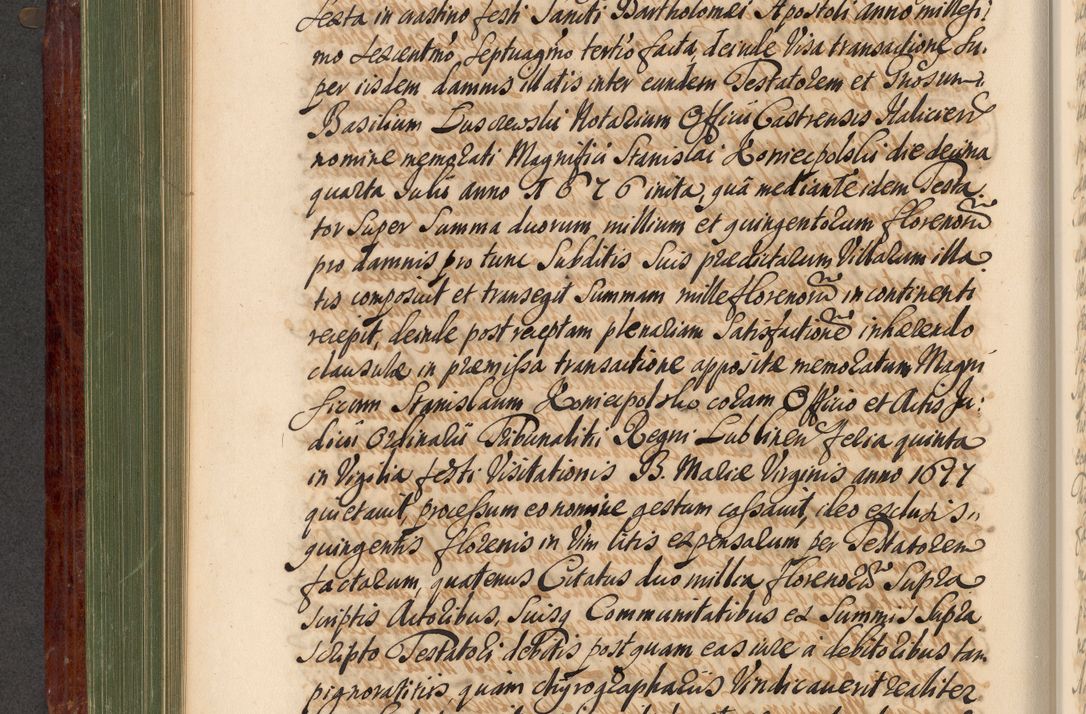 festa in crastino festi Sancti Bartholomæi Apostoli anno millesi:
mo sexcentmo septuagmo tertio facta, deinde Visa transactione su,
per iisdem damnis illatis inter eundem Testatorem et Gnosum
Basilium Luszewski Notarium Officii Castrensis Halicien
nomine memorati Magnifici Stanislai Koniecpolski die decima
quarta Julii anno 1676 inita, quâ mediante idem Testa,
tor super summa duorum millium et quingentorum florenorũ
pro damnis pro tunc subditis suis prædictarum Villarum illa,
tis composuit et transegit summam mille florenorũ in continenti
recepit, deinde post receptam plenariam satisfactionẽ inhærendo
clausulæ in præmissa transactione appositæ memoratum Magni
ficum Stanislaum Koniecpolski coram Officio et Actis Ju:
dicii Ordinarii Tribunalitii Regni Lublinen feria quinta
in Vigilia festi Visitationis B. Mariæ Virginis anno 1677
quietavit, processum eo nomine gestum cassavit, ideo exclusis
quingentis florenis in Vim litis expensarum per Testatorem
factarum, quatenus Citatus duo millia florenorũ supra
scriptis Actoribus, suisq Communitatibus ex summis supra
scripto Testatori debitis postquam eas iure a debitoribus tam
pignoratitiis, quam chyrographariis Vindicaverit realiter